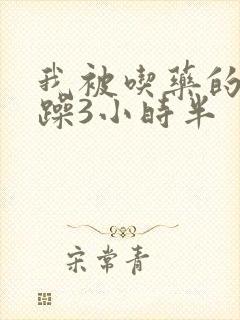 我被喫藥的
躁3小時半
宋常青